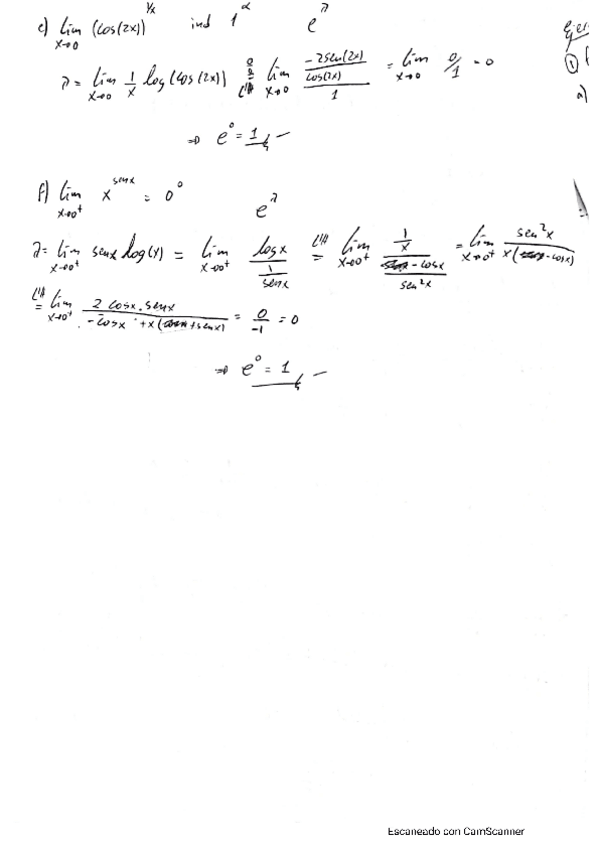 e) lim x→0 (cos(2x))^(1/x) ind 1^∝ e^λ
λ = lim x→0 1/x log(cos(2x)) 0/0 = L'H lim x→0 (-2sen(2x)/cos(2x))/1 = lim x→0 0/1 = 0
⇒ e^0 = 1
f) lim x→0+ x^senx = 0^0 e^λ
λ = lim x→0+ senx log(x) = lim x→0+ logx/(1/senx) L'H = lim x→0+ (1/x)/(-cosx/sen²x) = lim x→0+ sen²x/(x(-cosx))
L'H = lim x→0+ 2cosx.senx/(-cosx + x(+senx)) = 0/-1 = 0
⇒ e^0 = 1
Ejer
①
a)
Escaneado con CamScanner